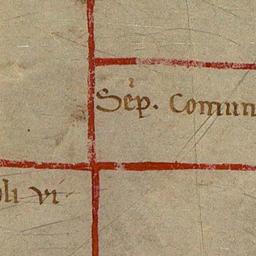 Sep̄. Comun
oli vi